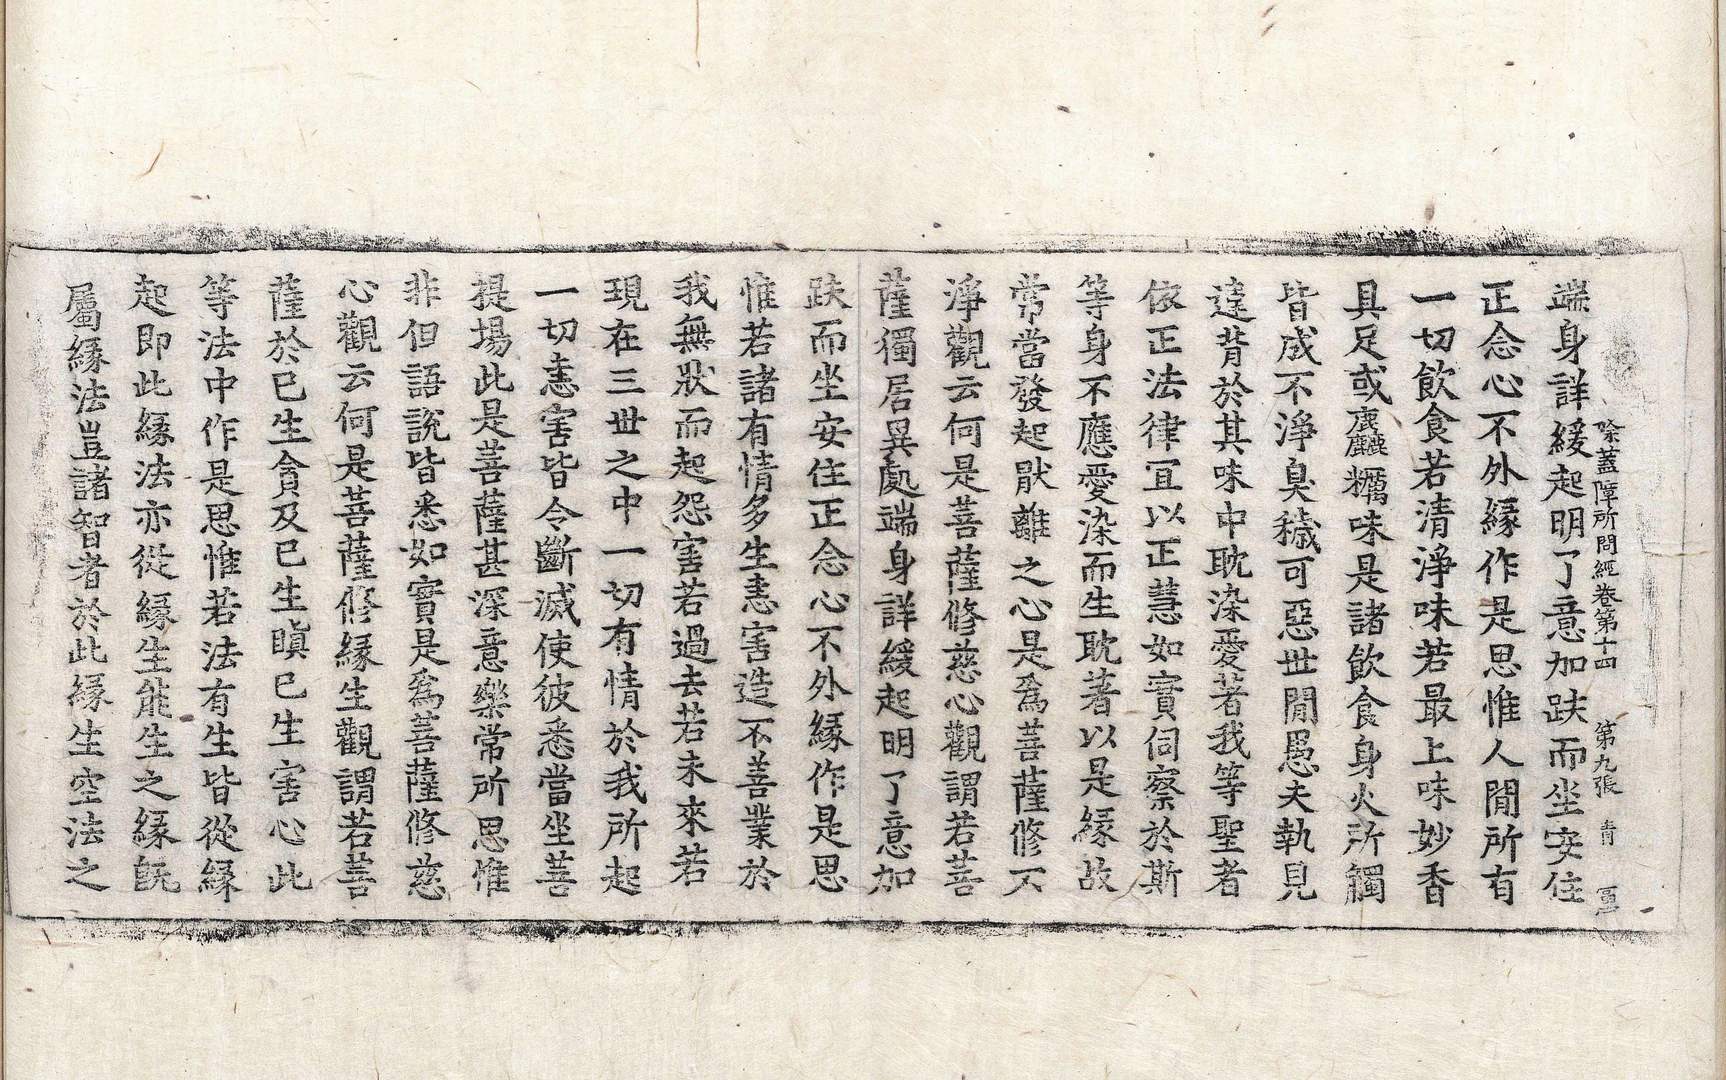 除蓋障所問經卷第十四　第九張　青
端身詳緩起明了意加趺而坐安住
正念心不外緣作是思惟人閒所有
一切飮食若清淨味若最上味妙香
具足或麤糲味是諸飮食身火所觸
皆成不淨臭穢可惡世閒愚夫執見
違背於其味中耽染愛著我等聖者
依正法律宜以正慧如實伺察於斯
等身不應愛染而生耽著以是緣故
常當發起厭離之心是爲菩薩修不
淨觀云何是菩薩修慈心觀謂若菩
薩獨居異處端身詳緩起明了意加
趺而坐安住正念心不外緣作是思
惟若諸有情多生恚害造不善業於
我無狀而起怨害若過去若未來若
現在三世之中一切有情於我所起
一切恚害皆令斷滅使彼悉當坐菩
提場此是菩薩甚深意樂常所思惟
非但語說皆悉如實是爲菩薩修慈
心觀云何是菩薩修緣生觀謂若菩
薩於已生貪及已生瞋已生害心此
等法中作是思惟若法有生皆從緣
起即此緣法亦從緣生能生之緣旣
屬緣法豈諸智者於此緣生空法之